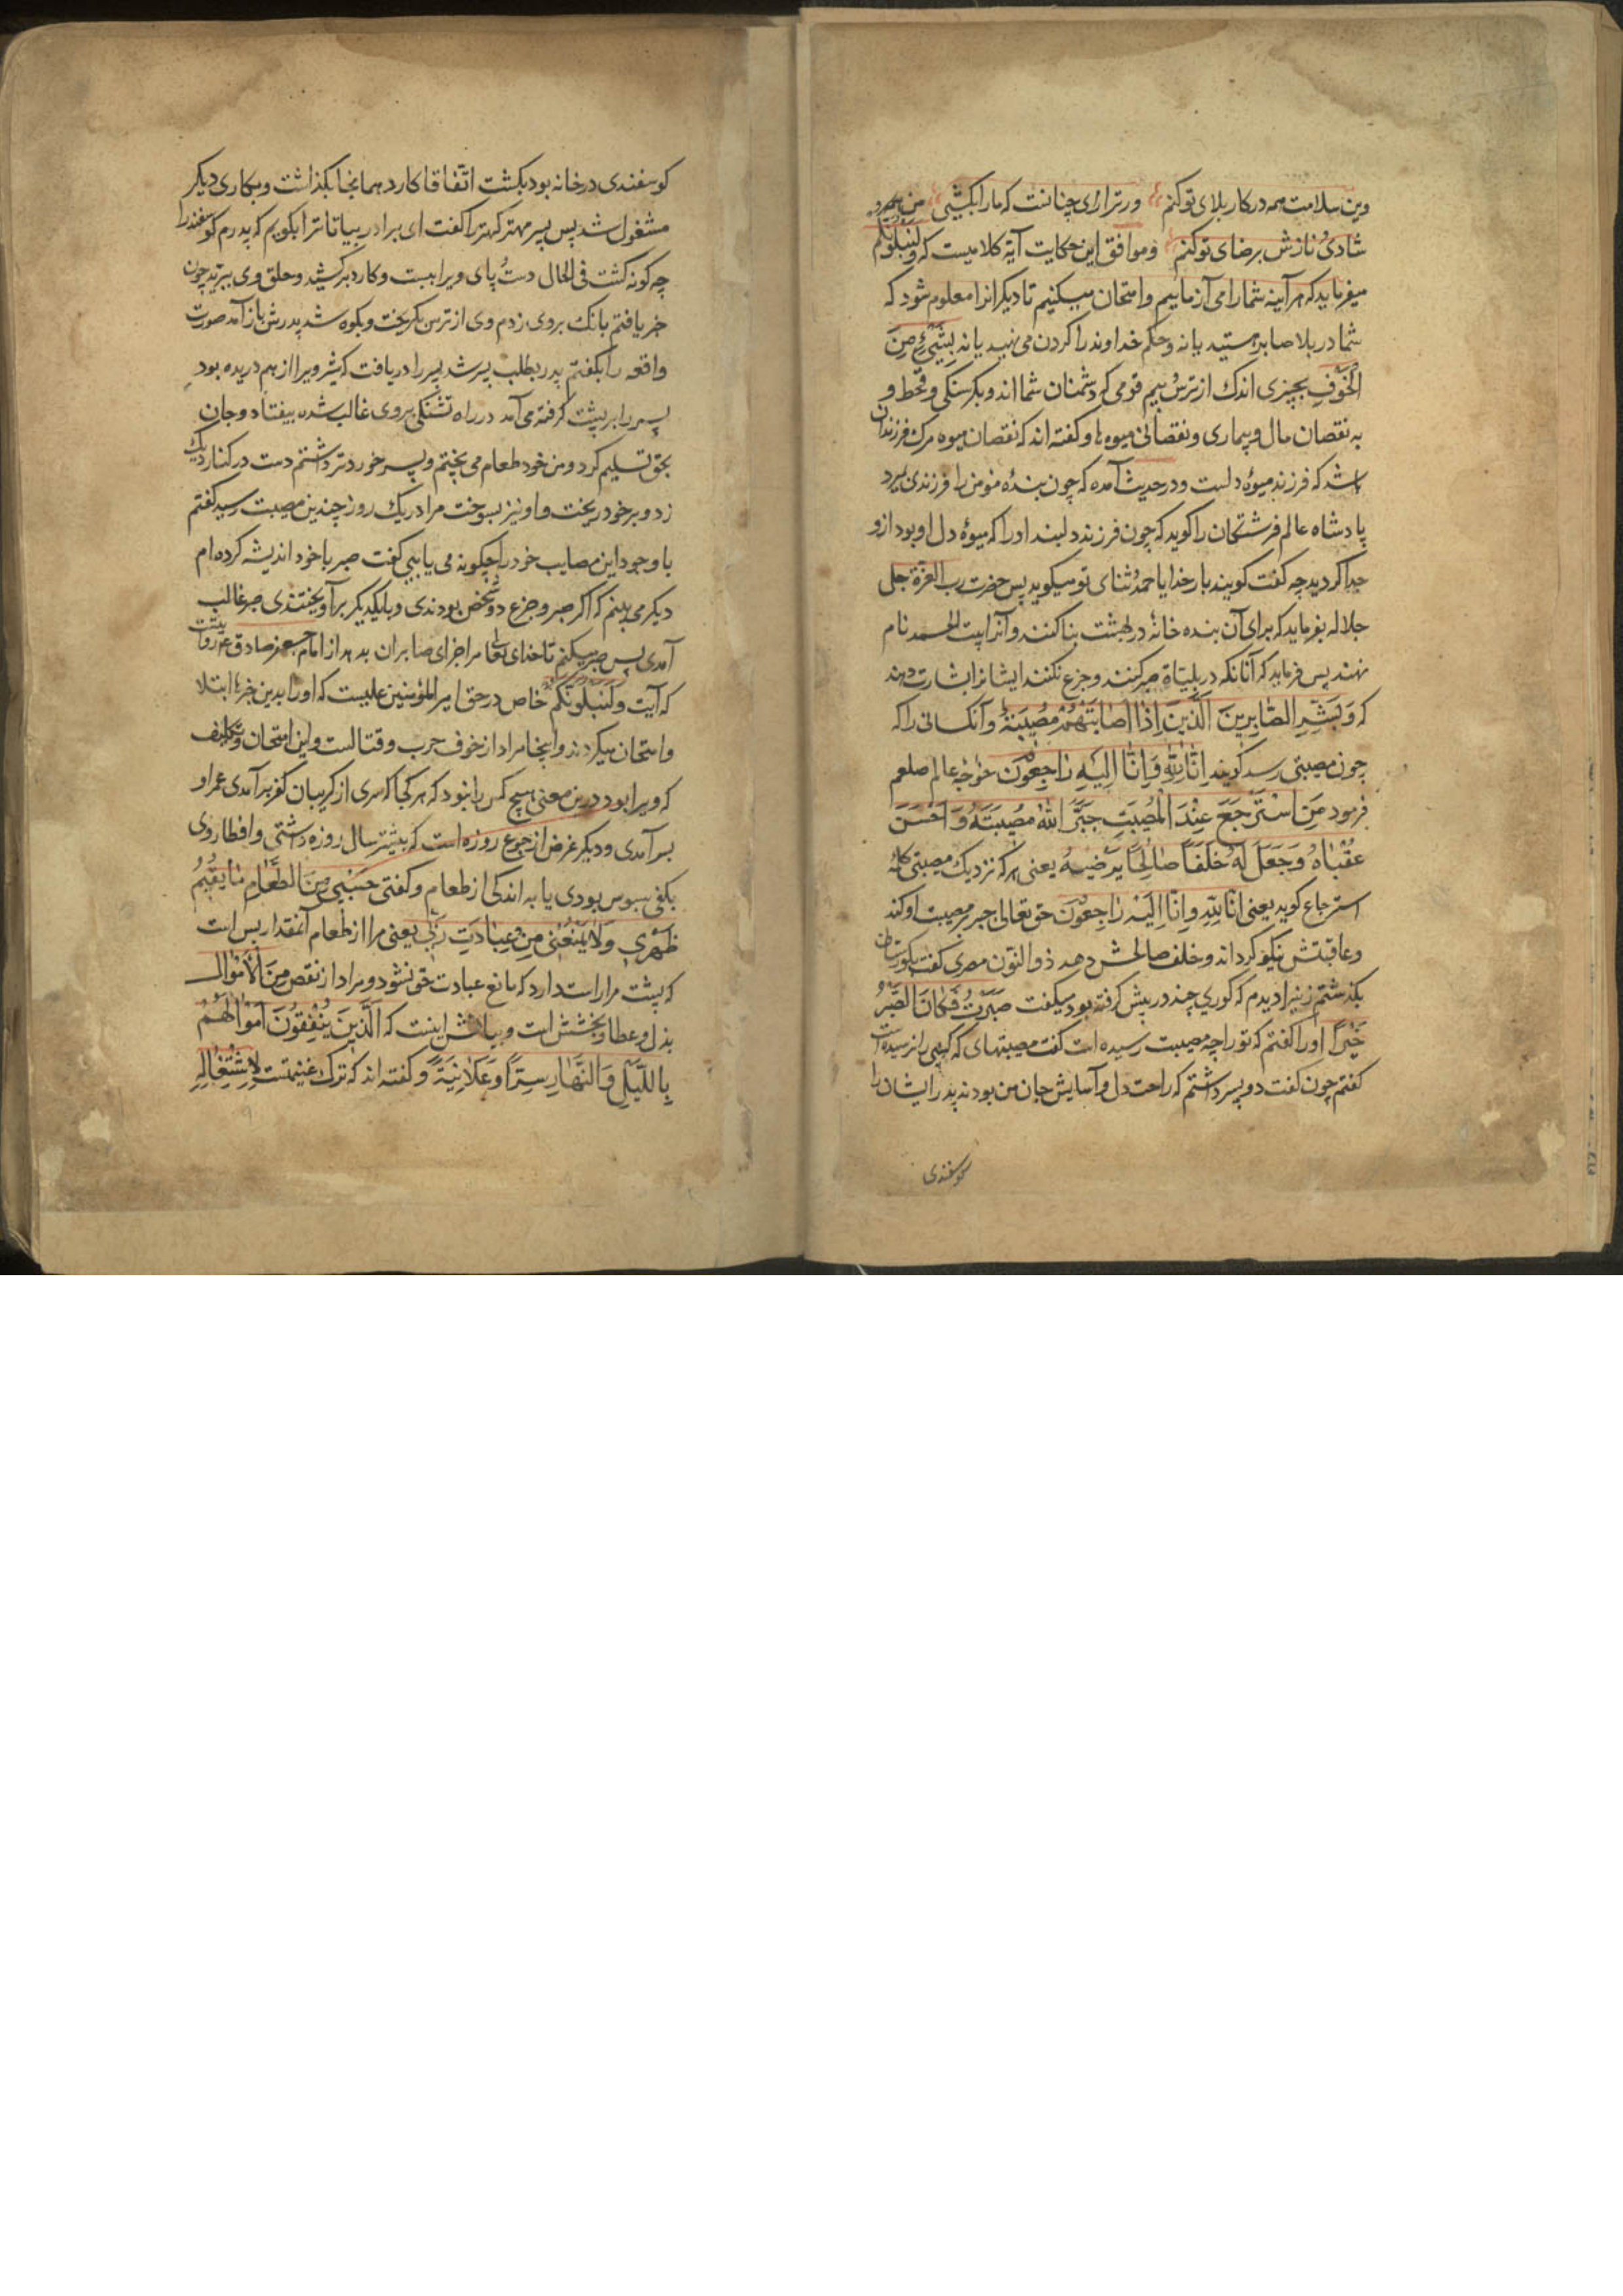 وین سلامت همه در کار بلای تو کنم ور ترا رای چنانست که ما را بکشی من
شادی و نازش برضای تو کنم و موافق این حکایت آیة کلامیست که ولنبلونکم
میفرماید که هر آینه شما را می آزماییم و امتحان میکنیم تا دیگرانرا معلوم شود که
شما در بلا صابر هستید یا نه و حکم خداوند را کردن می نهید یا نه بِشَیْءٍ مِنَ
الْخَوْفِ بچیزی اندک از ترس و بیم قومی که دشمنان شمااند و بکرسنکی و قحط و
به نقصان مال و بیماری و نقصانی میوه ها و کفته اند که نقصان میوه مرک فرزندان
باشد که فرزند میوهٔ دلست و در حدیث آمده که چون بندهٔ مؤمن را فرزندی بمیرد
پادشاه عالم فرشتکان را کوید که چون فرزند دلبند او را که میوهٔ دل او بود ازو
جدا کردید چه کفت کویند بار خدایا حمد و ثنای تو میکوید پس حضرت رب العزة جل
جلاله بفرماید که برای آن بنده خانهٔ در بهشت بنا کنند و آنرا بیت الحمد نام
نهند پس فرماید که آنانکه در بلیّات صبر کنند و جزع نکنند ایشانرا بشارت دهند
که وَبَشِّرِ الصَّابِرِینَ الَّذِینَ اِذَا اَصَابَتْهُمْ مُصِیبَةٌ و آنکسانی را که
چون مصیبتی رسد کویند اِنَّا لِلّٰهِ وَاِنَّا اِلَیْهِ رَاجِعُونَ خواجه عالم صلعم
فرمود مَنِ اسْتَرْجَعَ عِنْدَ الْمُصِیبَتِ جَبَّرَ اللّٰهُ مُصِیبَتَهُ وَ اَحْسَنَ
عُقْبَاهُ وَ جَعَلَ لَهُ خَلَفًا صَالِحًا یَرْضِیهُ یعنی هر که نزدیک مصیبتی کلمهٔ
استرجاع کوید یعنی انا للّٰه و انا الیه راجعون حق تعالی جبر مصیبت او کند
و عاقبتش نیکو کرداند و خلف صالحش دهد ذوالنّون مصری کفت بکورستان
بکذشتم زنیرا دیدم که کوری چند در پیش کرفته بود میکفت صَبَرْتُ فَکَانَ الصَّبْرُ
خَیْرًا او را کفتم که تو را چه مصیبت رسیده است کفت مصیبتهای که کسی را نرسیده است
کفتم چون کفت دو پسر داشتم که راحت دل و آسایش جان من بودند پدر ایشان را
کوسفندی
کوسفندی در خانه بود بکشت اتّفاقا کارد همانجا بکذاشت و بکاری دیکر
مشغول شد پس پسر مهتر کهتر را کفت ای برادر بیا تا ترا بکویم که پدرم کوسفند را
چه کونه کشت فی الحال دست و پای ویرا ببست و کارد برکشید و حلق وی ببرید چون
خبر یافتم بانک بر وی زدم وی از ترس بکریخت و بکوه شد پدرش باز آمد صورت
واقعه را بکفتم پدر بطلب پسر شد پسر را دریافت که شیر ویرا از هم دریده بود
پسر را بر پشت کرفته می آمد در راه تشنکی بر وی غالب شده بیفتاد و جان
بحق تسلیم کرد و من خود طعام می پختم و پسر خوردتر داشتم دست در کنار دیک
زد و بر خود ریخت و او نیز بسوخت مرا در یک روز چندین مصیبت رسید کفتم
با وجود این مصایب خود را چکونه می یابی کفت صبر با خود اندیشه کرده ام
دیکر می بینم که اکر صبر و جزع دو شخص بودندی و با یکدیکر برآویختندی صبر غالب
آمدی پس صبر میکنم تا خدای تعالی مرا جزای صابران بدهد از امام جعفر صادق ع روایتست
که آیت ولنبلونکم خاص در حق امیر المؤمنین علیست که او را بدین خبرها ابتلا
و امتحان میکردند و اینجا مراد از خوف حرب و قتالست و این امتحان و تکلیف
که ویرا بود درین معنی هیچ کس را نبود که هر کجا که سری از کریبان کفر برآمدی عمر او
بسر آمدی و دیکر غرض از جوع روزه است که بیشتر سال روزه داشتی و افطار وی
بکفی سبوس بودی یا به اندکی از طعام و کفتی حَسْبِی مِنَ الطَّعَامِ مَا یُقِیمُ
ظَهْرِی وَلَا یَمْنَعُنِی مِنْ عِبَادَتِ رَبِّی یعنی مرا از طعام آنمقدار بس است
که پشت مرا راست دارد که مانع عبادت حق نشود و مراد از نقص مِنَ الْاَمْوَالِ
بذل و عطا و بخشش است و بیانش اینست که الَّذِینَ یُنْفِقُونَ اَمْوَالَهُمْ
بِاللَّیْلِ وَالنَّهَارِ سِرًّا وَعَلَانِیَةً و کفته اند که ترک غنیمتست لِاشْتِغَالِهِ